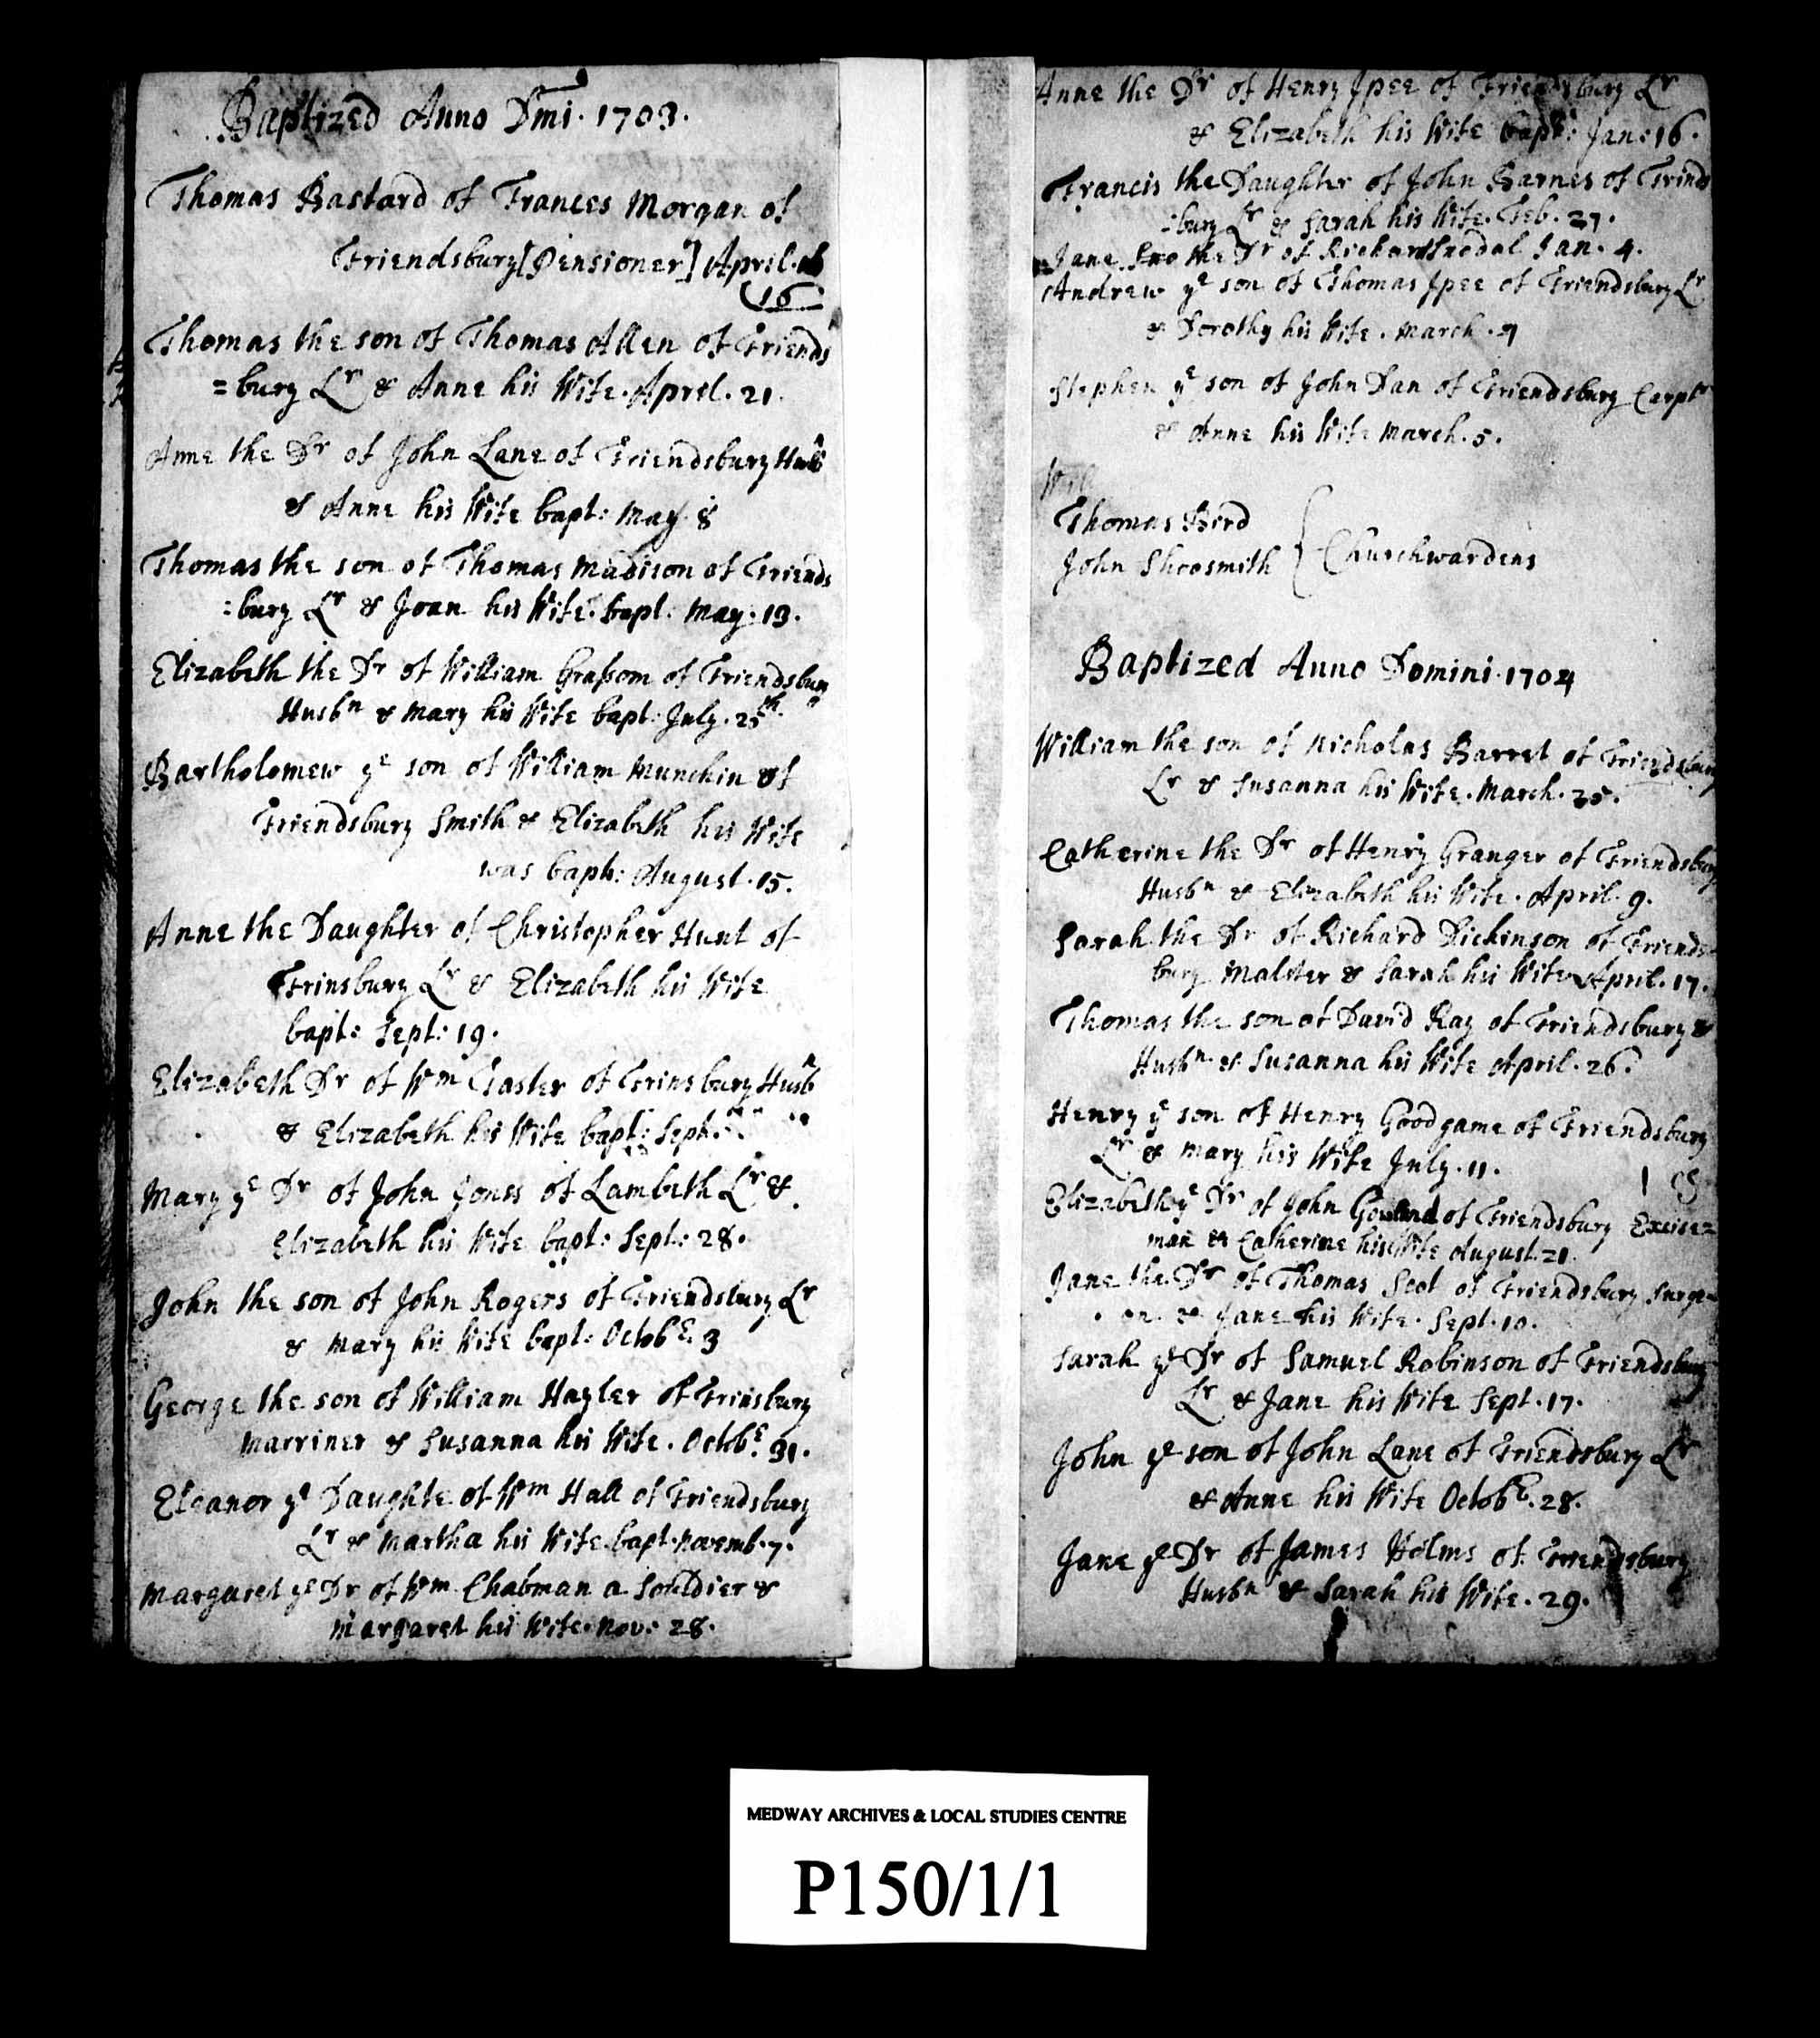 Baptized Anno Dmi. 1703.
Thomas Bastard of Frances Morgan of
Friendsbury [Pensioner] April.
16
Thomas the son of Thomas Allen of Friends
=bury Lr & Anne his Wife. April. 21.
Anne the Dr of John Lane of Friendsbury Husb
& Anne his Wife bapt: May. 8
Thomas the son of Thomas Madison of Friends
=bury Lr & Joan his Wife. bapt. May. 13.
Elizabeth the Dr of William Grassom of Friendsbury
Husbn & Mary his Wife bapt: July. 25th.
Bartholomew ye son of William Munchin of
Friendsbury Smith & Elizabeth his Wife
was bapt: August. 15.
Anne the Daughter of Christopher Hunt of
Frinsbury Lr & Elizabeth his Wife
bapt: Sept: 19.
Elizabeth Dr of Wm Caster of Frinsbury Husb
& Elizabeth his Wife bapt: Sept.
Mary ye Dr of John Jones of Lambeth Lr &
Elizabeth his Wife bapt: Sept: 28.
John the son of John Rogers of Friendsbury Lr
& Mary his Wife bapt: Octobe. 3
George the son of William Hayler of Frinsbury
Marriner & Susanna his Wife. Octobe. 31.
Eleanor ye Daughte of Wm Hall of Friendsbury
Lr & Martha his Wife. bapt. Novemb. 7.
Margaret ye Dr of Wm Chabman a Souldier &
Margaret his Wife. Nov: 28.
Anne the Dr of Henry Jpee of Friendsbury Lr
& Elizabeth his Wife bapt: Jan: 16.
Francis the Daughter of John Barnes of Frinds
=bury Lr & Sarah his Wife. Feb. 27.
Jane the Dr of Richard Snodal Jan. 4.
Andrew ye son of Thomas Jpee of Friendsbury Lr
& Dorothy his Wife. March. 7
Stephen ye son of John Dan of Friendsbury Carptr
& Anne his Wife March. 5.
Wil
Thomas Bird
John Shoosmith } Churchwardens
Baptized Anno Domini. 1704
William the son of Nicholas Barret of Friendsbury
Lr & Susanna his Wife. March. 25.
Catherine the Dr of Henry Granger of Friendsbury
Husbn & Elizabeth his Wife. April. 9.
Sarah the Dr of Richard Dickinson of Friends=
bury Malster & Sarah his Wife April. 17.
Thomas the son of David Ray of Friendsbury &
Husbn & Susanna his Wife April. 26.
Henry ye son of Henry Goodgame of Friendsbury
Lr & Mary his Wife July. 11.
Elizabeth ye Dr of John of Friendsbury Excise=
man & Catherine his Wife August. 21.
Jane the Dr of Thomas Scot of Friendsbury Surge=
on & Jane his Wife. Sept. 10.
Sarah ye Dr of Samuel Robinson of Friendsbury
Lr & Jane his Wife Sept. 17.
John ye son of John Lane of Friendsbury Lr
& Anne his Wife Octobe. 28.
Jane ye Dr of James Holms of Friendsbury
Husbn & Sarah his Wife. 29.
MEDWAY ARCHIVES & LOCAL STUDIES CENTRE
P150/1/1